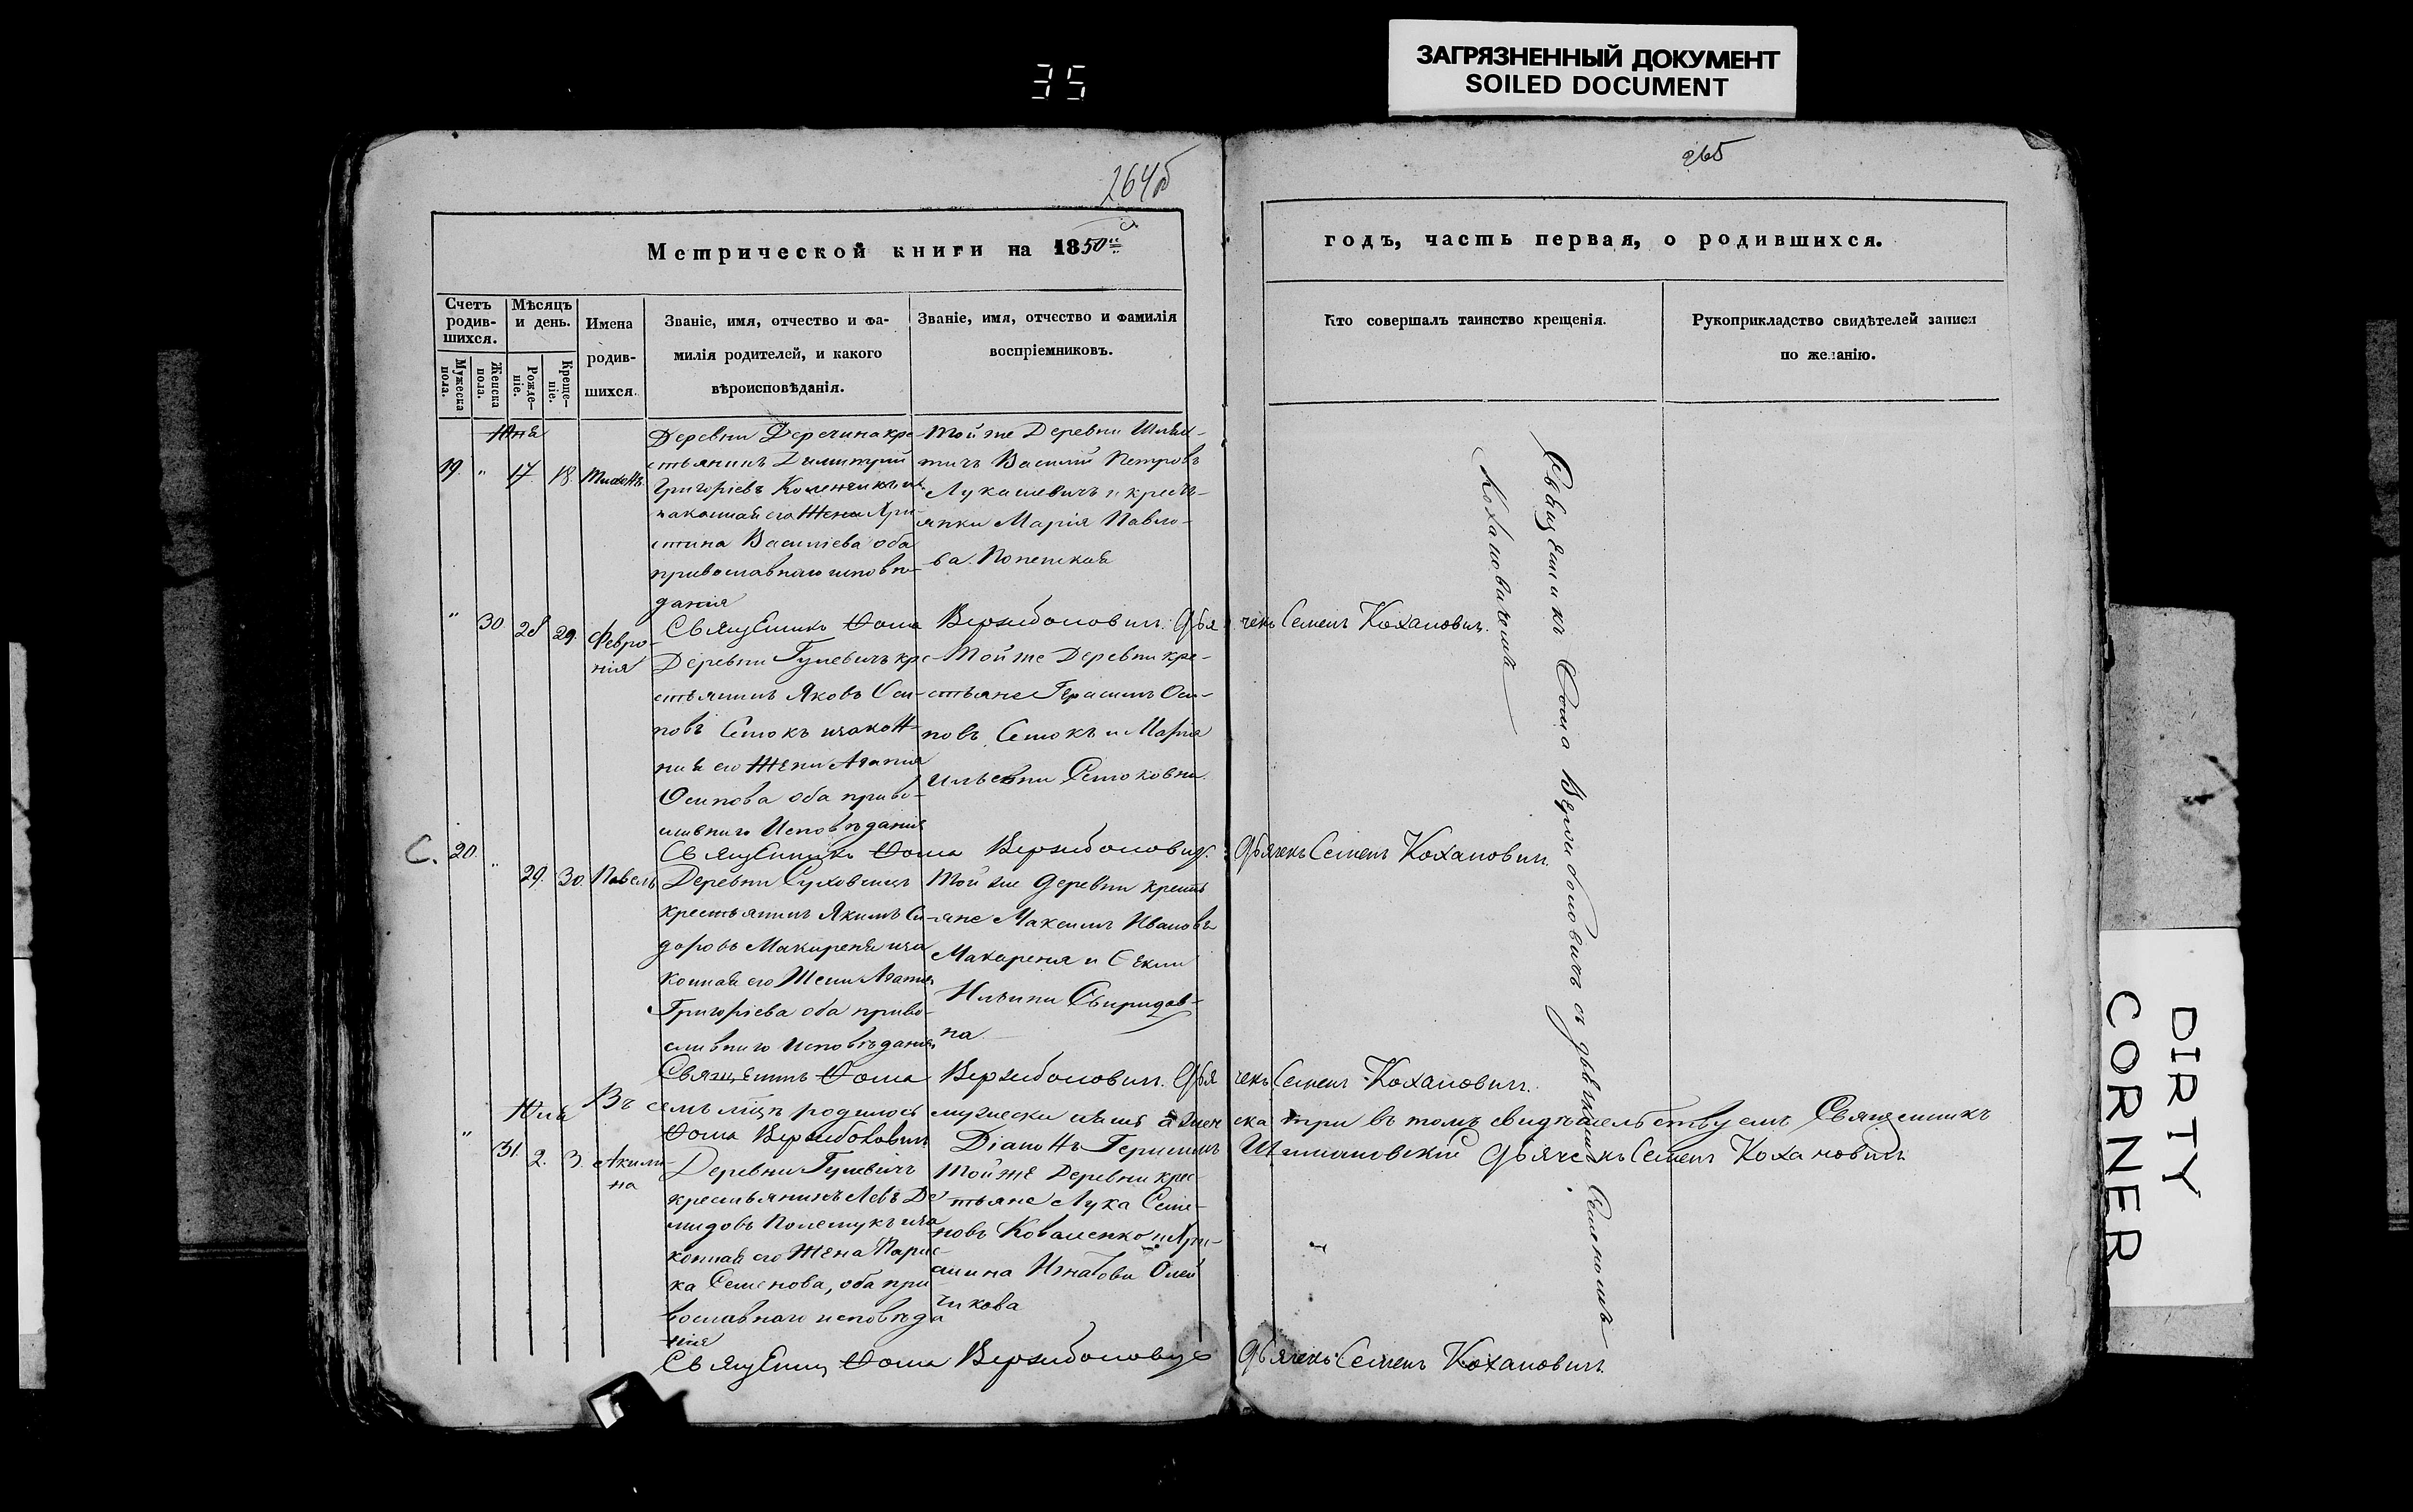 ЗАГРЯЗНЕННЫЙ ДОКУМЕНТ
SOILED DOCUMENT
35
264об
265
Метрической книги на 1850й
годъ, часть первая, о родившихся.
Счетъ родив-шихся.
Мужеска пола.
Женска пола.
Мѣсяцъ и день.
Рожде-ніе.
Креще-ніе.
Имена
родив-
шихся.
Званіе, имя, отчество и фа-
милія родителей, и какого
вѣроисповѣданія.
Званіе, имя, отчество и фамилія
воспріемниковъ.
Кто совершалъ таинство крещенія.
Рукоприкладство свидѣтелей записи
по желанію.
19. " 17. 18.
Деревни Деречина кре-
стьянинъ Димитрий
Григоріевъ
законная его Жена Хри-
стина Василіева оба
православнаго исповѣ-
данія
Той же Деревни Шлях-
тичъ Василий Петровъ
Лукашевичъ и кресть-
янка Марія Павло-
ва
Священникъ Ѳома Вержболовичъ. Дьячекъ Семенъ Кохановичъ.
" 30. 28 29. Февро-
нія
Деревни Гулевичъ кре-
стьянинъ Яковъ Оси-
повъ Семокъ и закон-
ная его Жена Агапия
Осипова оба право-
славнаго Исповѣданія
Той же Деревни кре-
стьяне Герасимъ Оси-
повъ Семокъ и Марія
Ильевна Семоковна.
Священникъ Ѳома Вержболовичъ. Дьячекъ Семенъ Кохановичъ.
С. 20. " 29. 30. Павелъ
крестьянинъ Якимъ Си-
доровъ Макареня и за
конная его Жена Агапия
Григоріева оба право-
славнаго Исповѣданія
Той же деревни кресть
яне Максимъ Ивановъ
Макареня и Ѳекла
Ильина Свиридов-
на
Священникъ Ѳома Вержболовичъ. Дьячекъ Семенъ Кохановичъ.
Въ семъ мцѣ родилось мужеска а женска три въ томъ свидѣтельствуемъ Священникъ
Ѳома Вержболовичъ Діаконъ Герасимъ Шимановскій Дьячекъ Семенъ Кохановичъ
Юля
" 31. 2. 3. Акили-
на
Деревни Гулевичъ
крестьянинъ Левъ Де
мидовъ Полещукъ и за
конная его Жена Парас
ка Семенова, оба пра
вославнаго исповѣда
нія
Той же Деревни крес-
тьяне Лука Семе-
новъ Коваленко и Хри-
стина Игнатова Олей
никова
Священникъ Ѳома Вержболовичъ Дьячекъ Семенъ Кохановичъ.
Священникъ Ѳома Вержболовичъ съ дьячкомъ Семеномъ
Кохановичемъ
DIRTY
CORNER